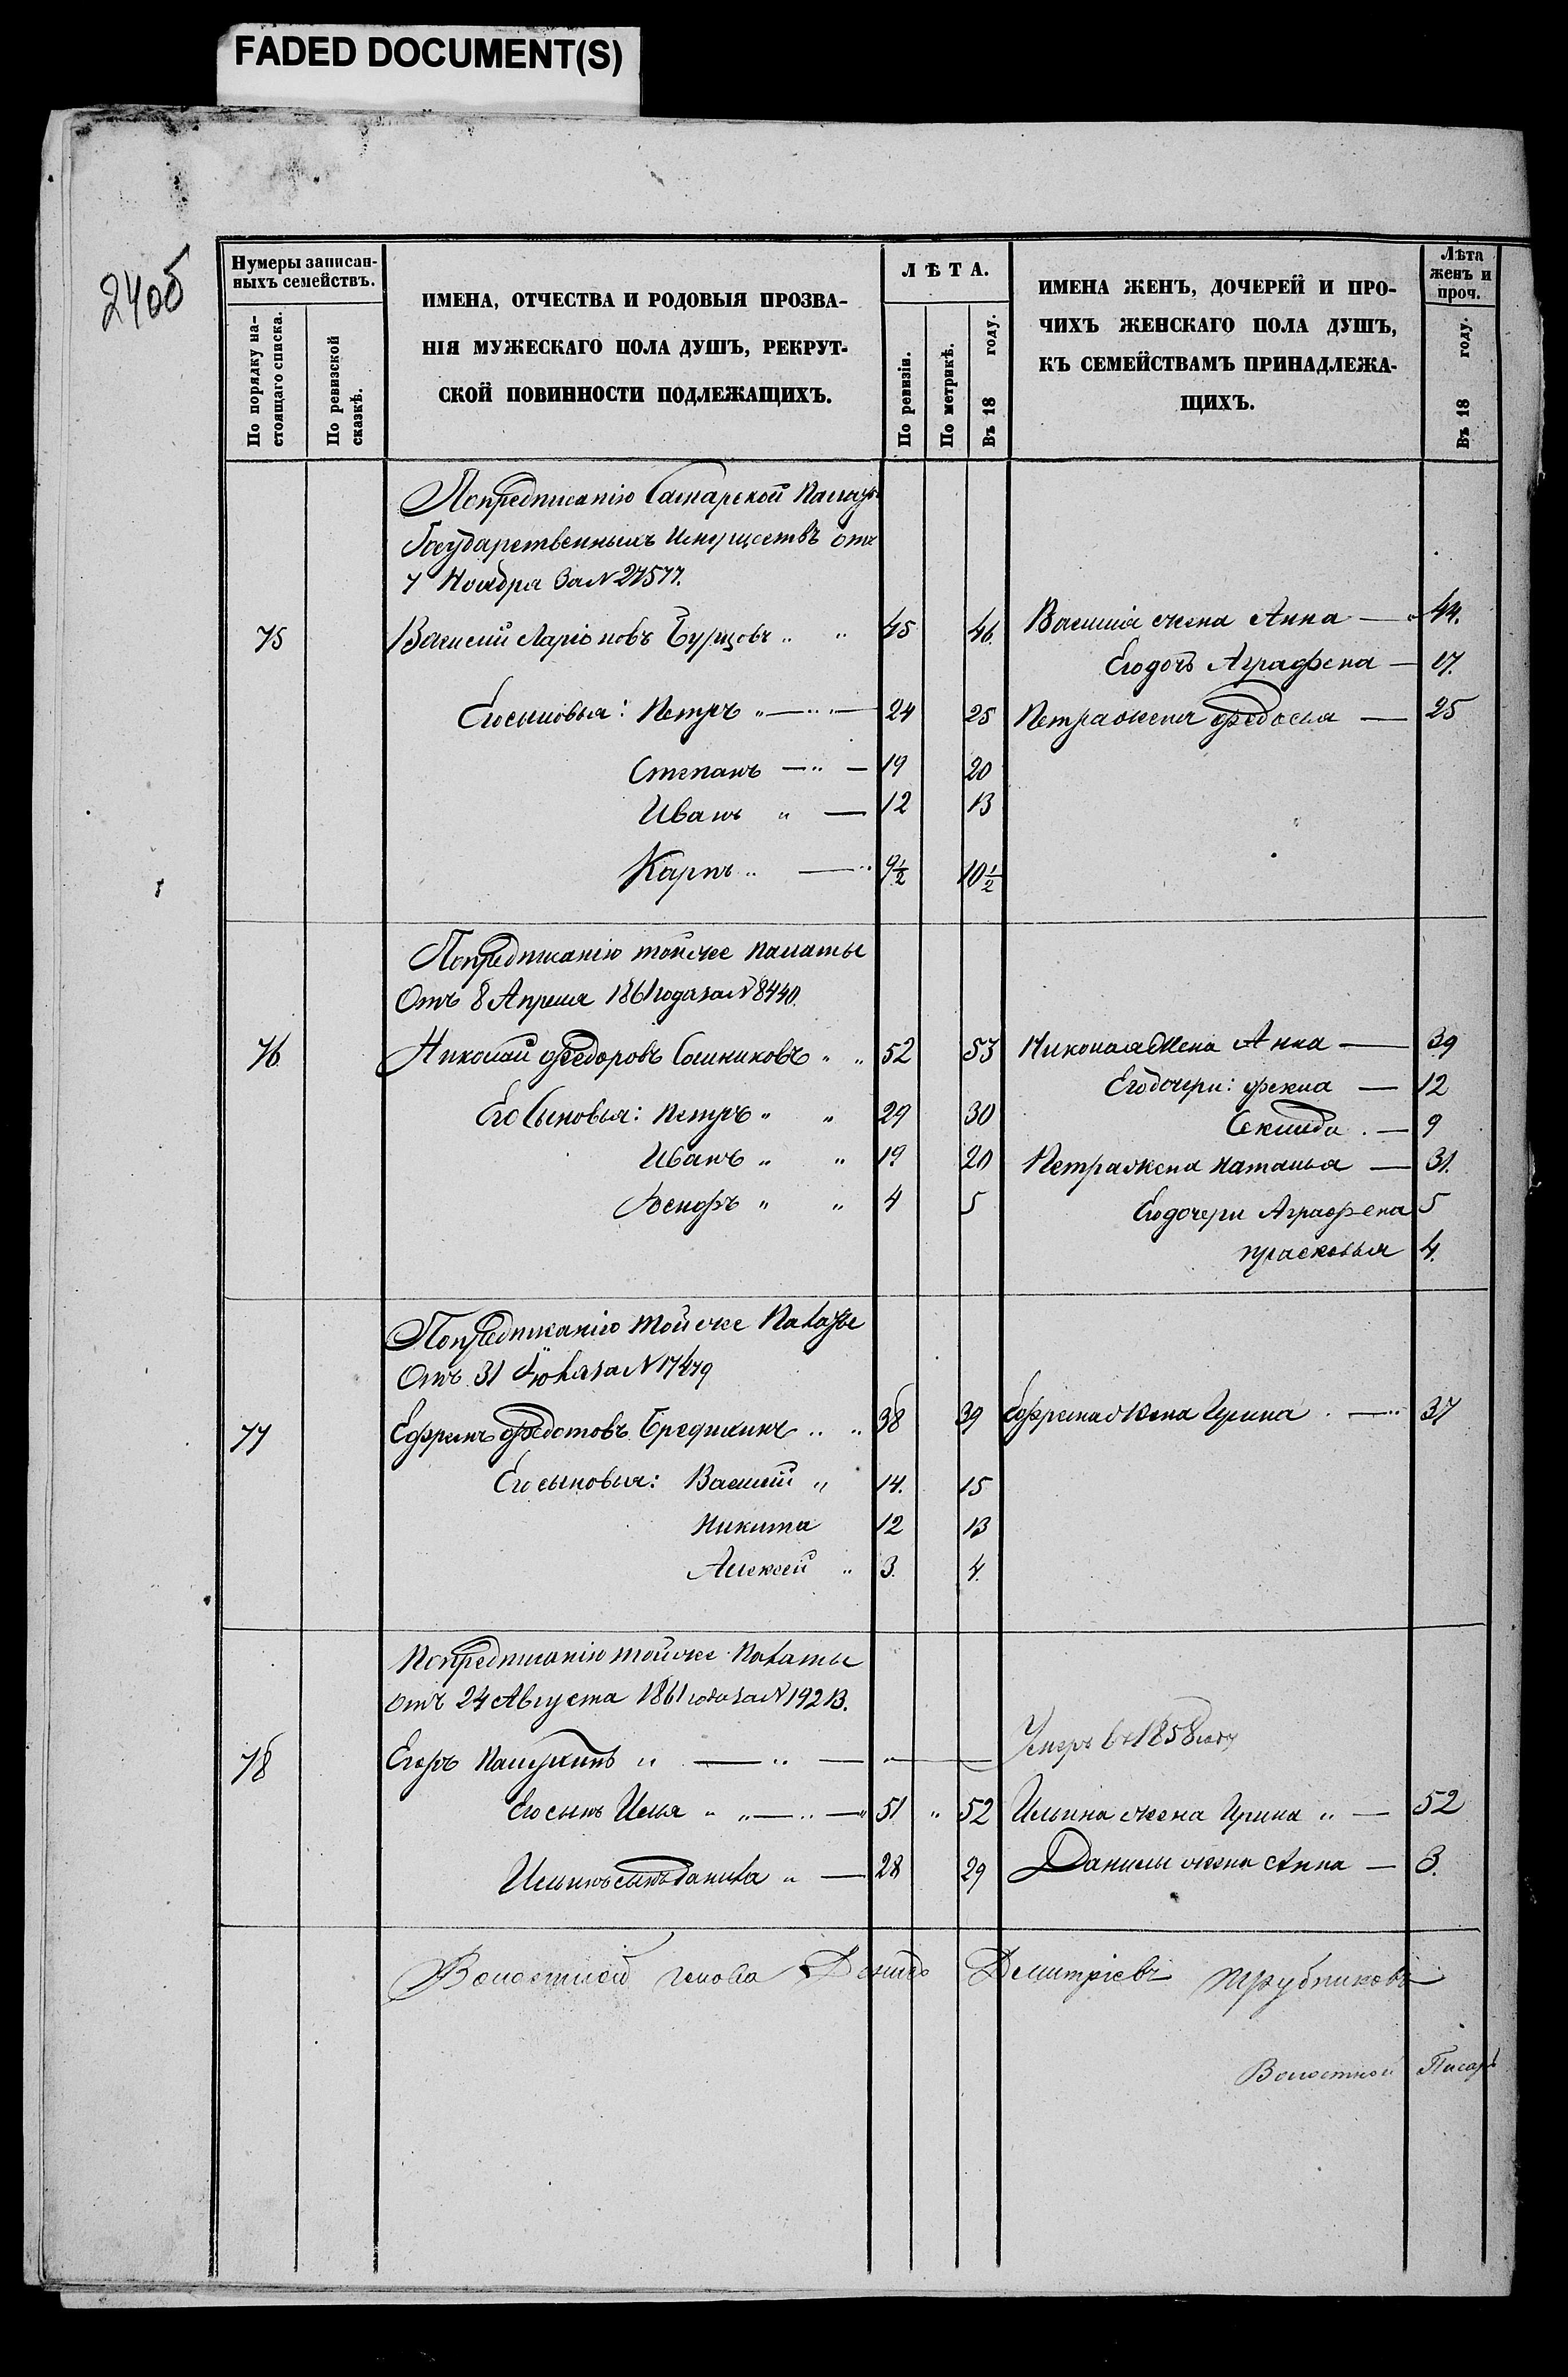 FADED DOCUMENT(S)
24об
Нумеры записан-
ныхъ семействъ.
По порядку на-
стоящаго списка.
По ревизской
сказкѣ.
ИМЕНА, ОТЧЕСТВА И РОДОВЫЯ ПРОЗВА-
НІЯ МУЖЕСКАГО ПОЛА ДУШЪ, РЕКРУТ-
СКОЙ ПОВИННОСТИ ПОДЛЕЖАЩИХЪ.
ЛѢТА.
По ревизіи.
По метрикѣ.
Въ 18 году.
ИМЕНА ЖЕНЪ, ДОЧЕРЕЙ И ПРО-
ЧИХЪ ЖЕНСКАГО ПОЛА ДУШЪ,
КЪ СЕМЕЙСТВАМЪ ПРИНАДЛЕЖА-
ЩИХЪ.
Лѣта
женъ и
проч.
Въ 18 году.
По предписанію Самарской Палаты
Государственныхъ Имуществъ отъ
7 Ноября За N 27577.
75 Василій Ларіоновъ Бурцовъ 45 46. Василія жена Анна 44.
Его дочь Аграфена 17.
Его сыновья: Петръ 24 25 Петра жена Федосья 25
Степанъ 19 20
Иванъ 12 13
Карпъ 9½ 10½
По предписанію той же палаты
Отъ 8 Апреля 1861 года за N 8440.
76 Николай Федоровъ Сошниковъ 52 53 Николая Жена Анна 39
Его дочери: Фекла 12
9
Его Сыновья: Петръ 29 30
Иванъ 19 20 Петра жена Наталья 31.
4 5 Его дочери Аграфена 5
прасковья 4.
По предписанію той же Палаты
Отъ 31 Іюля за N 17479
77 Ефремъ Федотовъ 38 39 Ефрема Жена Ирина 37
Его сыновья: Василій 14. 15
Никита 12 13
Алексей 3. 4.
По предписанію той же Палаты
отъ 24 Августа 1861 года за N 19213.
78 Егоръ Умеръ въ 1858 году
Его сынъ Илья 51 52 Ильина жена Ирина 52
Ильинъ сынъ Данила 28 29 Данилы жена Анна 3.
Волостной голова Демидъ Дмитріевъ Трубниковъ
Волостной Писарь